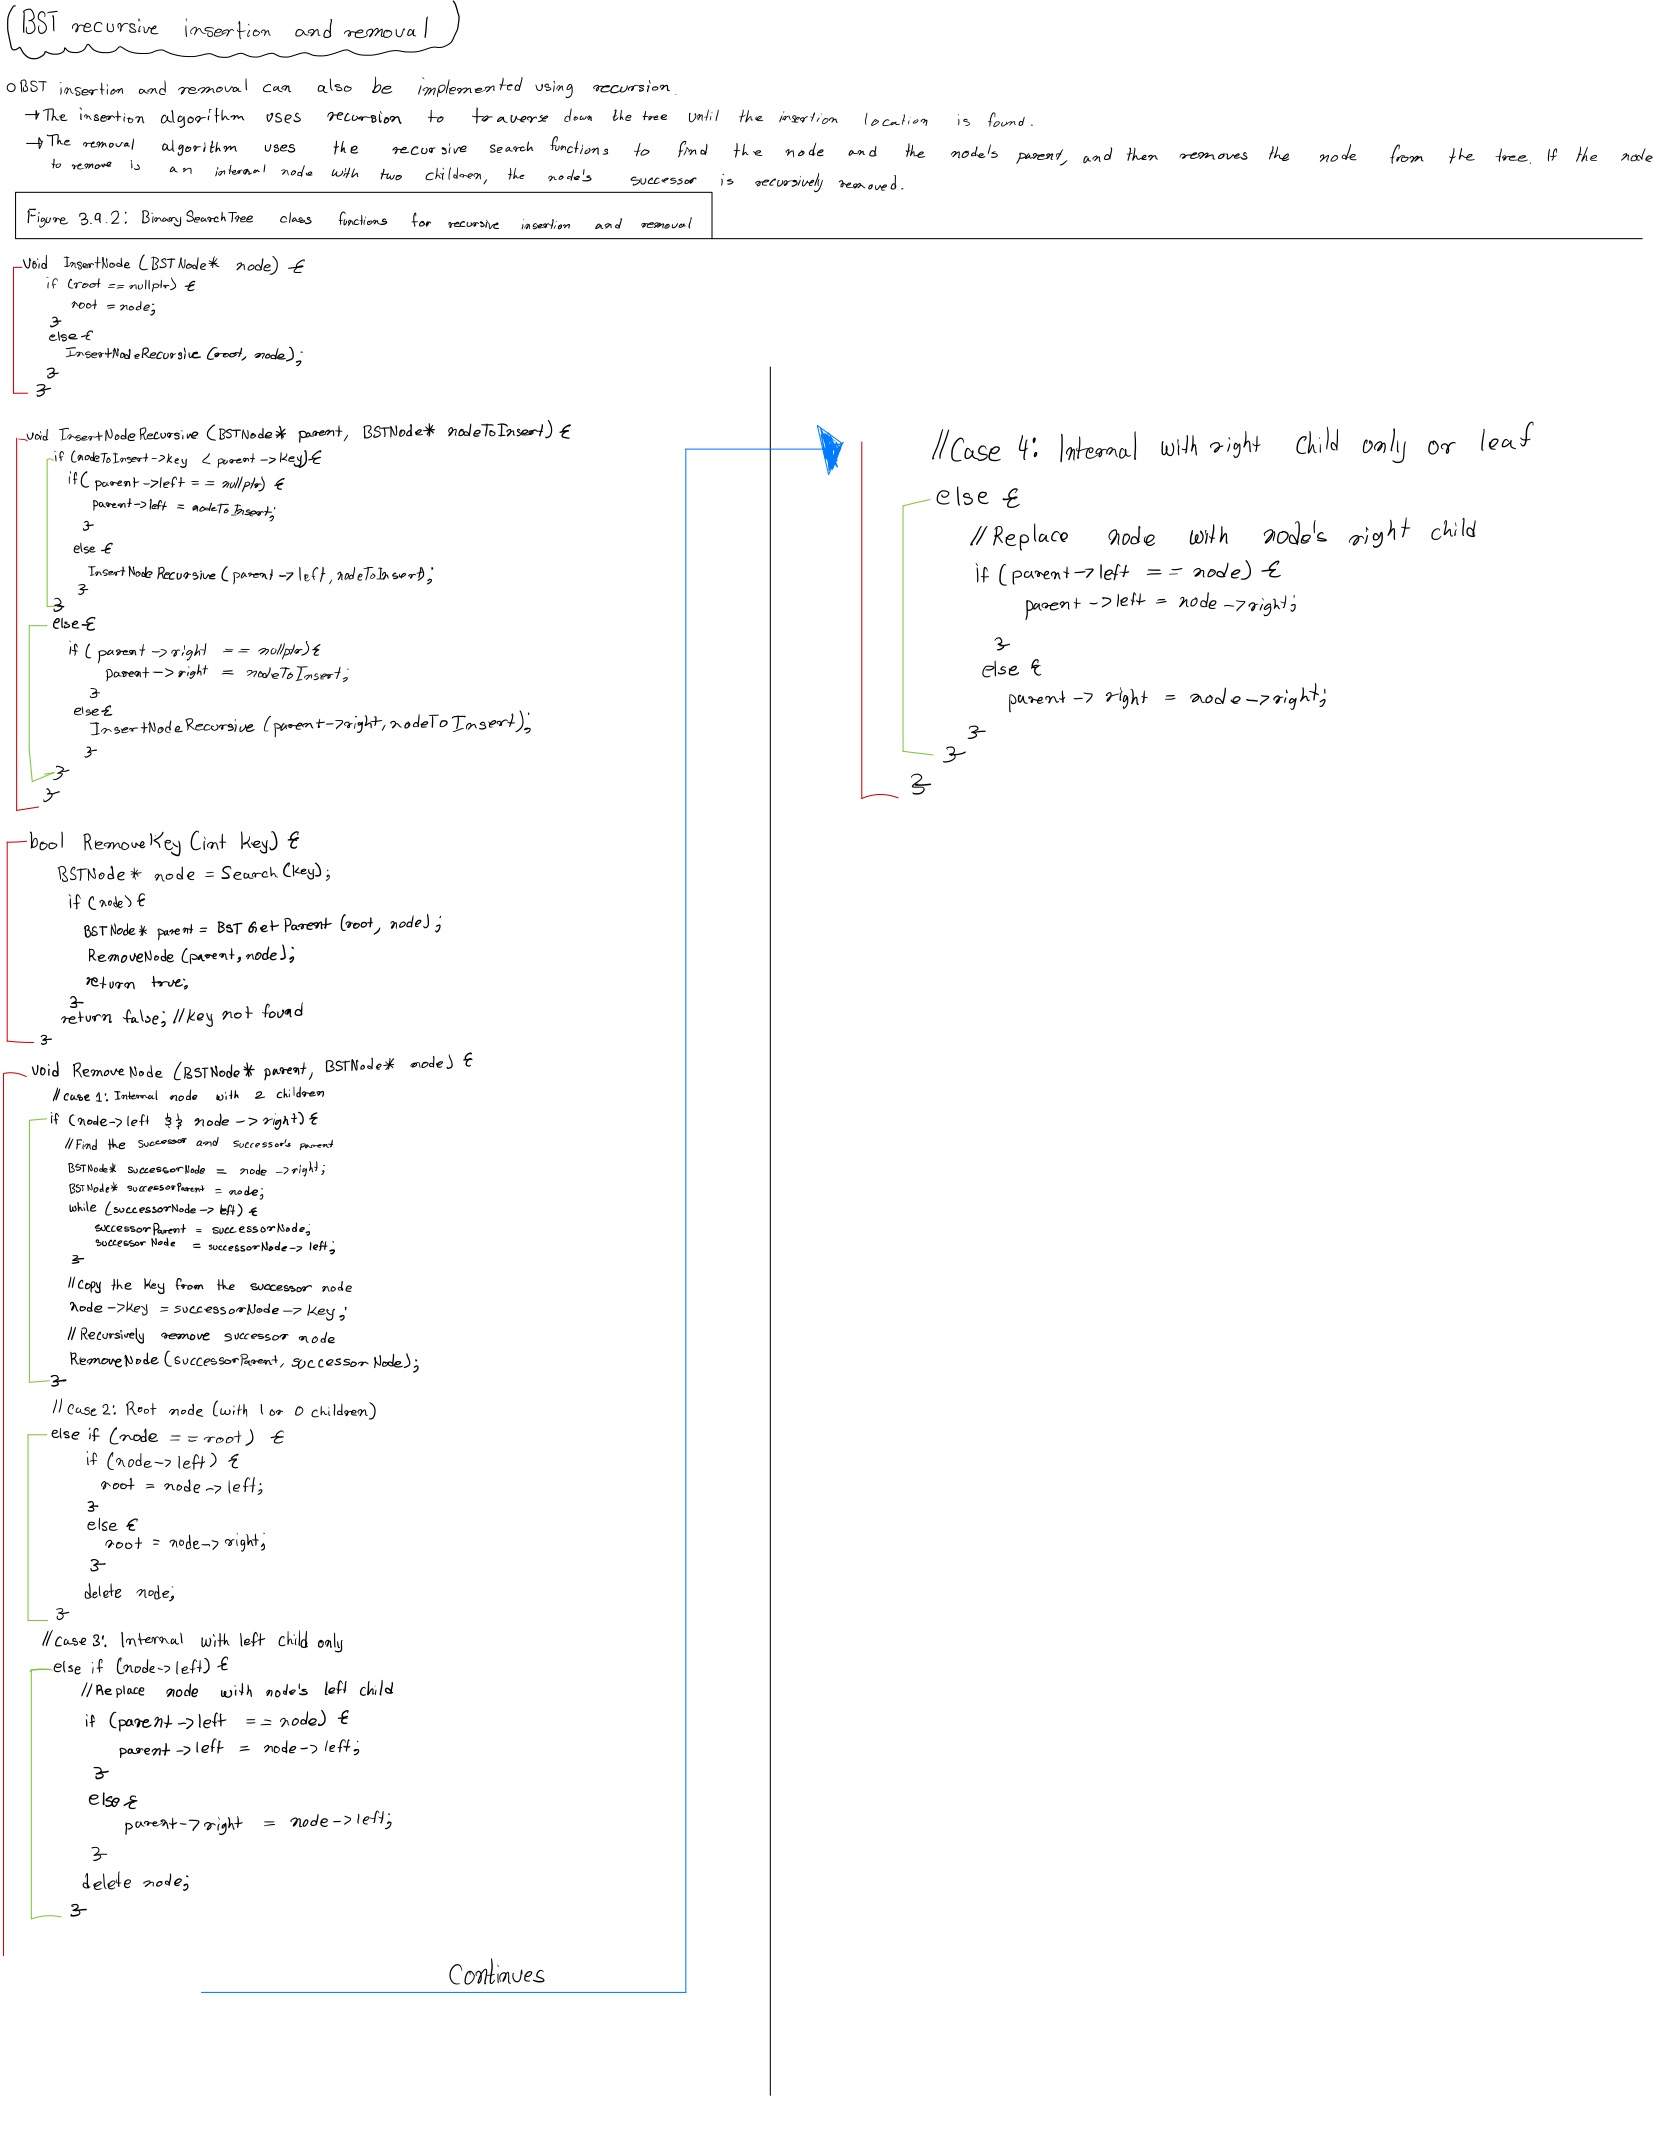 BST recursive insertion and removal
○ BST insertion and removal can also be implemented using recursion.
→ The insertion algorithm uses recursion to traverse down the tree until the insertion location is found.
→ The removal algorithm uses the recursive search functions to find the node and the node's parent, and then removes the node from the tree. If the node
to remove is an internal node with two children, the node's successor is recursively removed.
Figure 3.9.2: BinarySearchTree class functions for recursive insertion and removal
void InsertNode (BSTNode* node) {
if (root == nullptr) {
root = node;
}
else {
InsertNodeRecursive (root, node);
}
}
void InsertNodeRecursive (BSTNode* parent, BSTNode* nodeToInsert) {
if (nodeToInsert->key < parent->key) {
if ( parent->left == nullptr) {
parent->left = nodeToInsert;
}
else {
InsertNodeRecursive (parent->left, nodeToInsert);
}
}
else {
if ( parent->right == nullptr) {
parent->right = nodeToInsert;
}
else {
InsertNodeRecursive (parent->right, nodeToInsert);
}
}
}
bool RemoveKey (int key) {
BSTNode* node = Search (key);
if (node) {
BSTNode* parent = BSTGetParent (root, node);
RemoveNode (parent, node);
return true;
}
return false; //key not found
}
void RemoveNode (BSTNode* parent, BSTNode* node) {
// case 1: Internal node with 2 children
if (node->left && node->right) {
//Find the successor and successor's parent
BSTNode* successorNode = node->right;
BSTNode* successorParent = node;
while (successorNode->left) {
successorParent = successorNode;
successorNode = successorNode->left;
}
//Copy the key from the successor node
node->key = successorNode->key;
// Recursively remove successor node
RemoveNode (successorParent, successorNode);
}
// Case 2: Root node (with 1 or 0 children)
else if (node == root) {
if (node->left) {
root = node->left;
}
else {
root = node->right;
}
delete node;
}
// case 3: Internal with left child only
else if (node->left) {
//Replace node with node's left child
if (parent->left == node) {
parent->left = node->left;
}
else {
parent->right = node->left;
}
delete node;
}
Continues
//Case 4: Internal with right child only or leaf
else {
//Replace node with node's right child
if (parent->left == node) {
parent->left = node->right;
}
else {
parent->right = node->right;
}
}
}